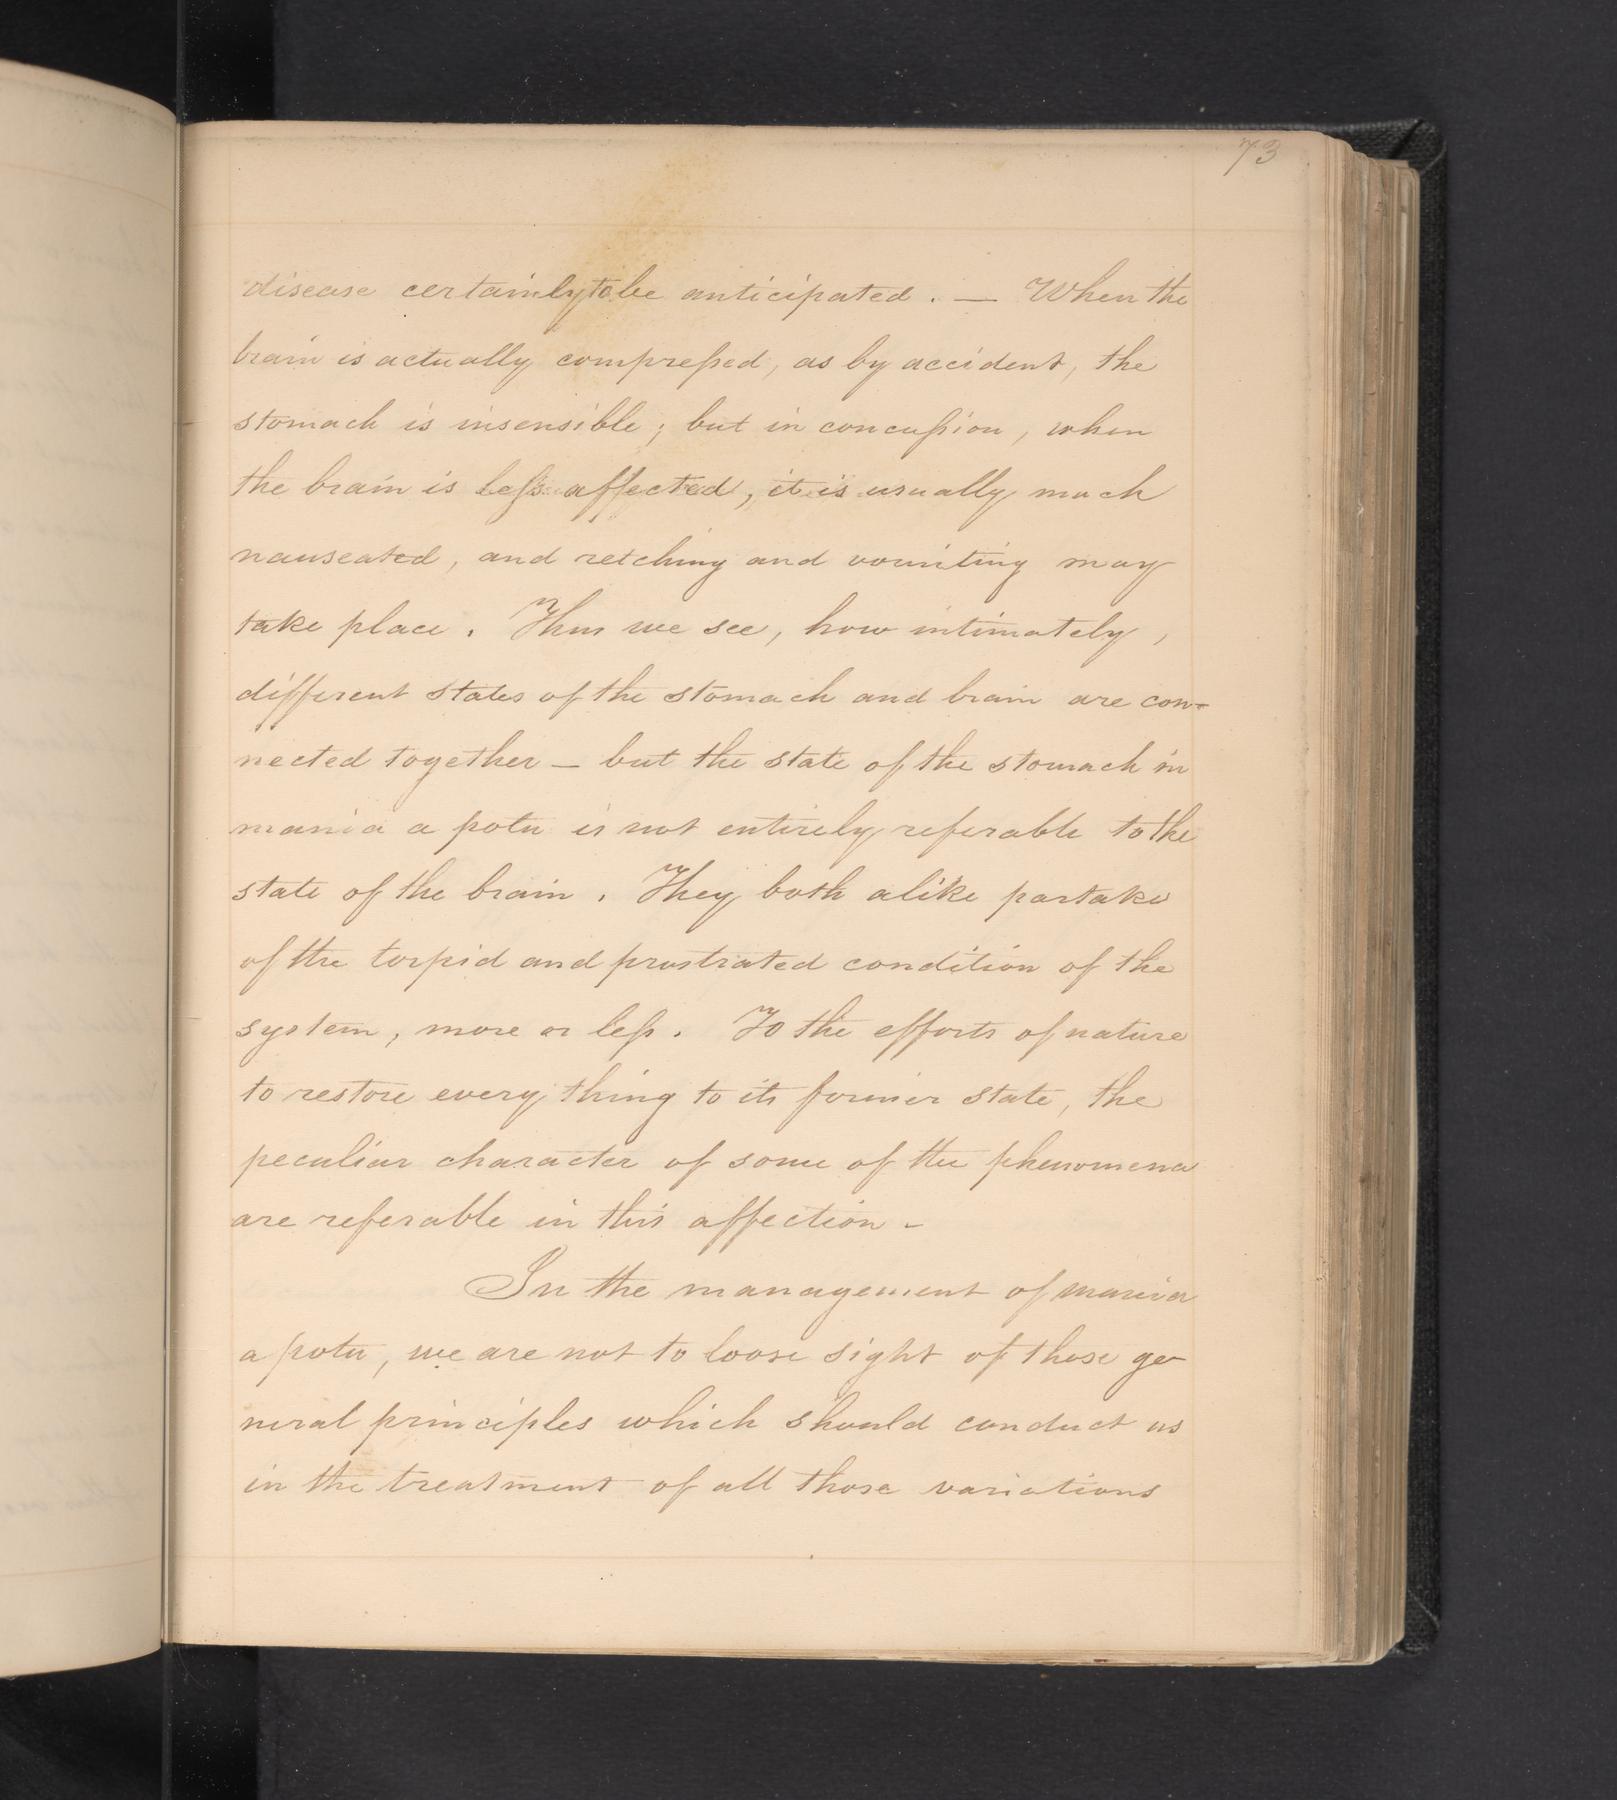 73
disease certainly to be anticipated. — When the
brain is actually compreſsed, as by accident, the
stomach is insensible; but in concuſsion, when
the brain is leſs affected, it is usually much
nauseated, and retching and vomiting may
take place. Thus we see, how intimately,
different states of the stomach and brain are con=
nected together — but the state of the stomach in
mania a potu is not entirely referable to the
state of the brain. They both alike partake
of the torpid and prostrated condition of the
system, more or leſs. To the efforts of nature
to restore every thing to its former state, the
peculiar character of some of the phenomena
are referable in this affection —
In the management of mania
a potu, we are not to loose sight of those ge-
neral principles which should conduct us
in the treatment of all those variations